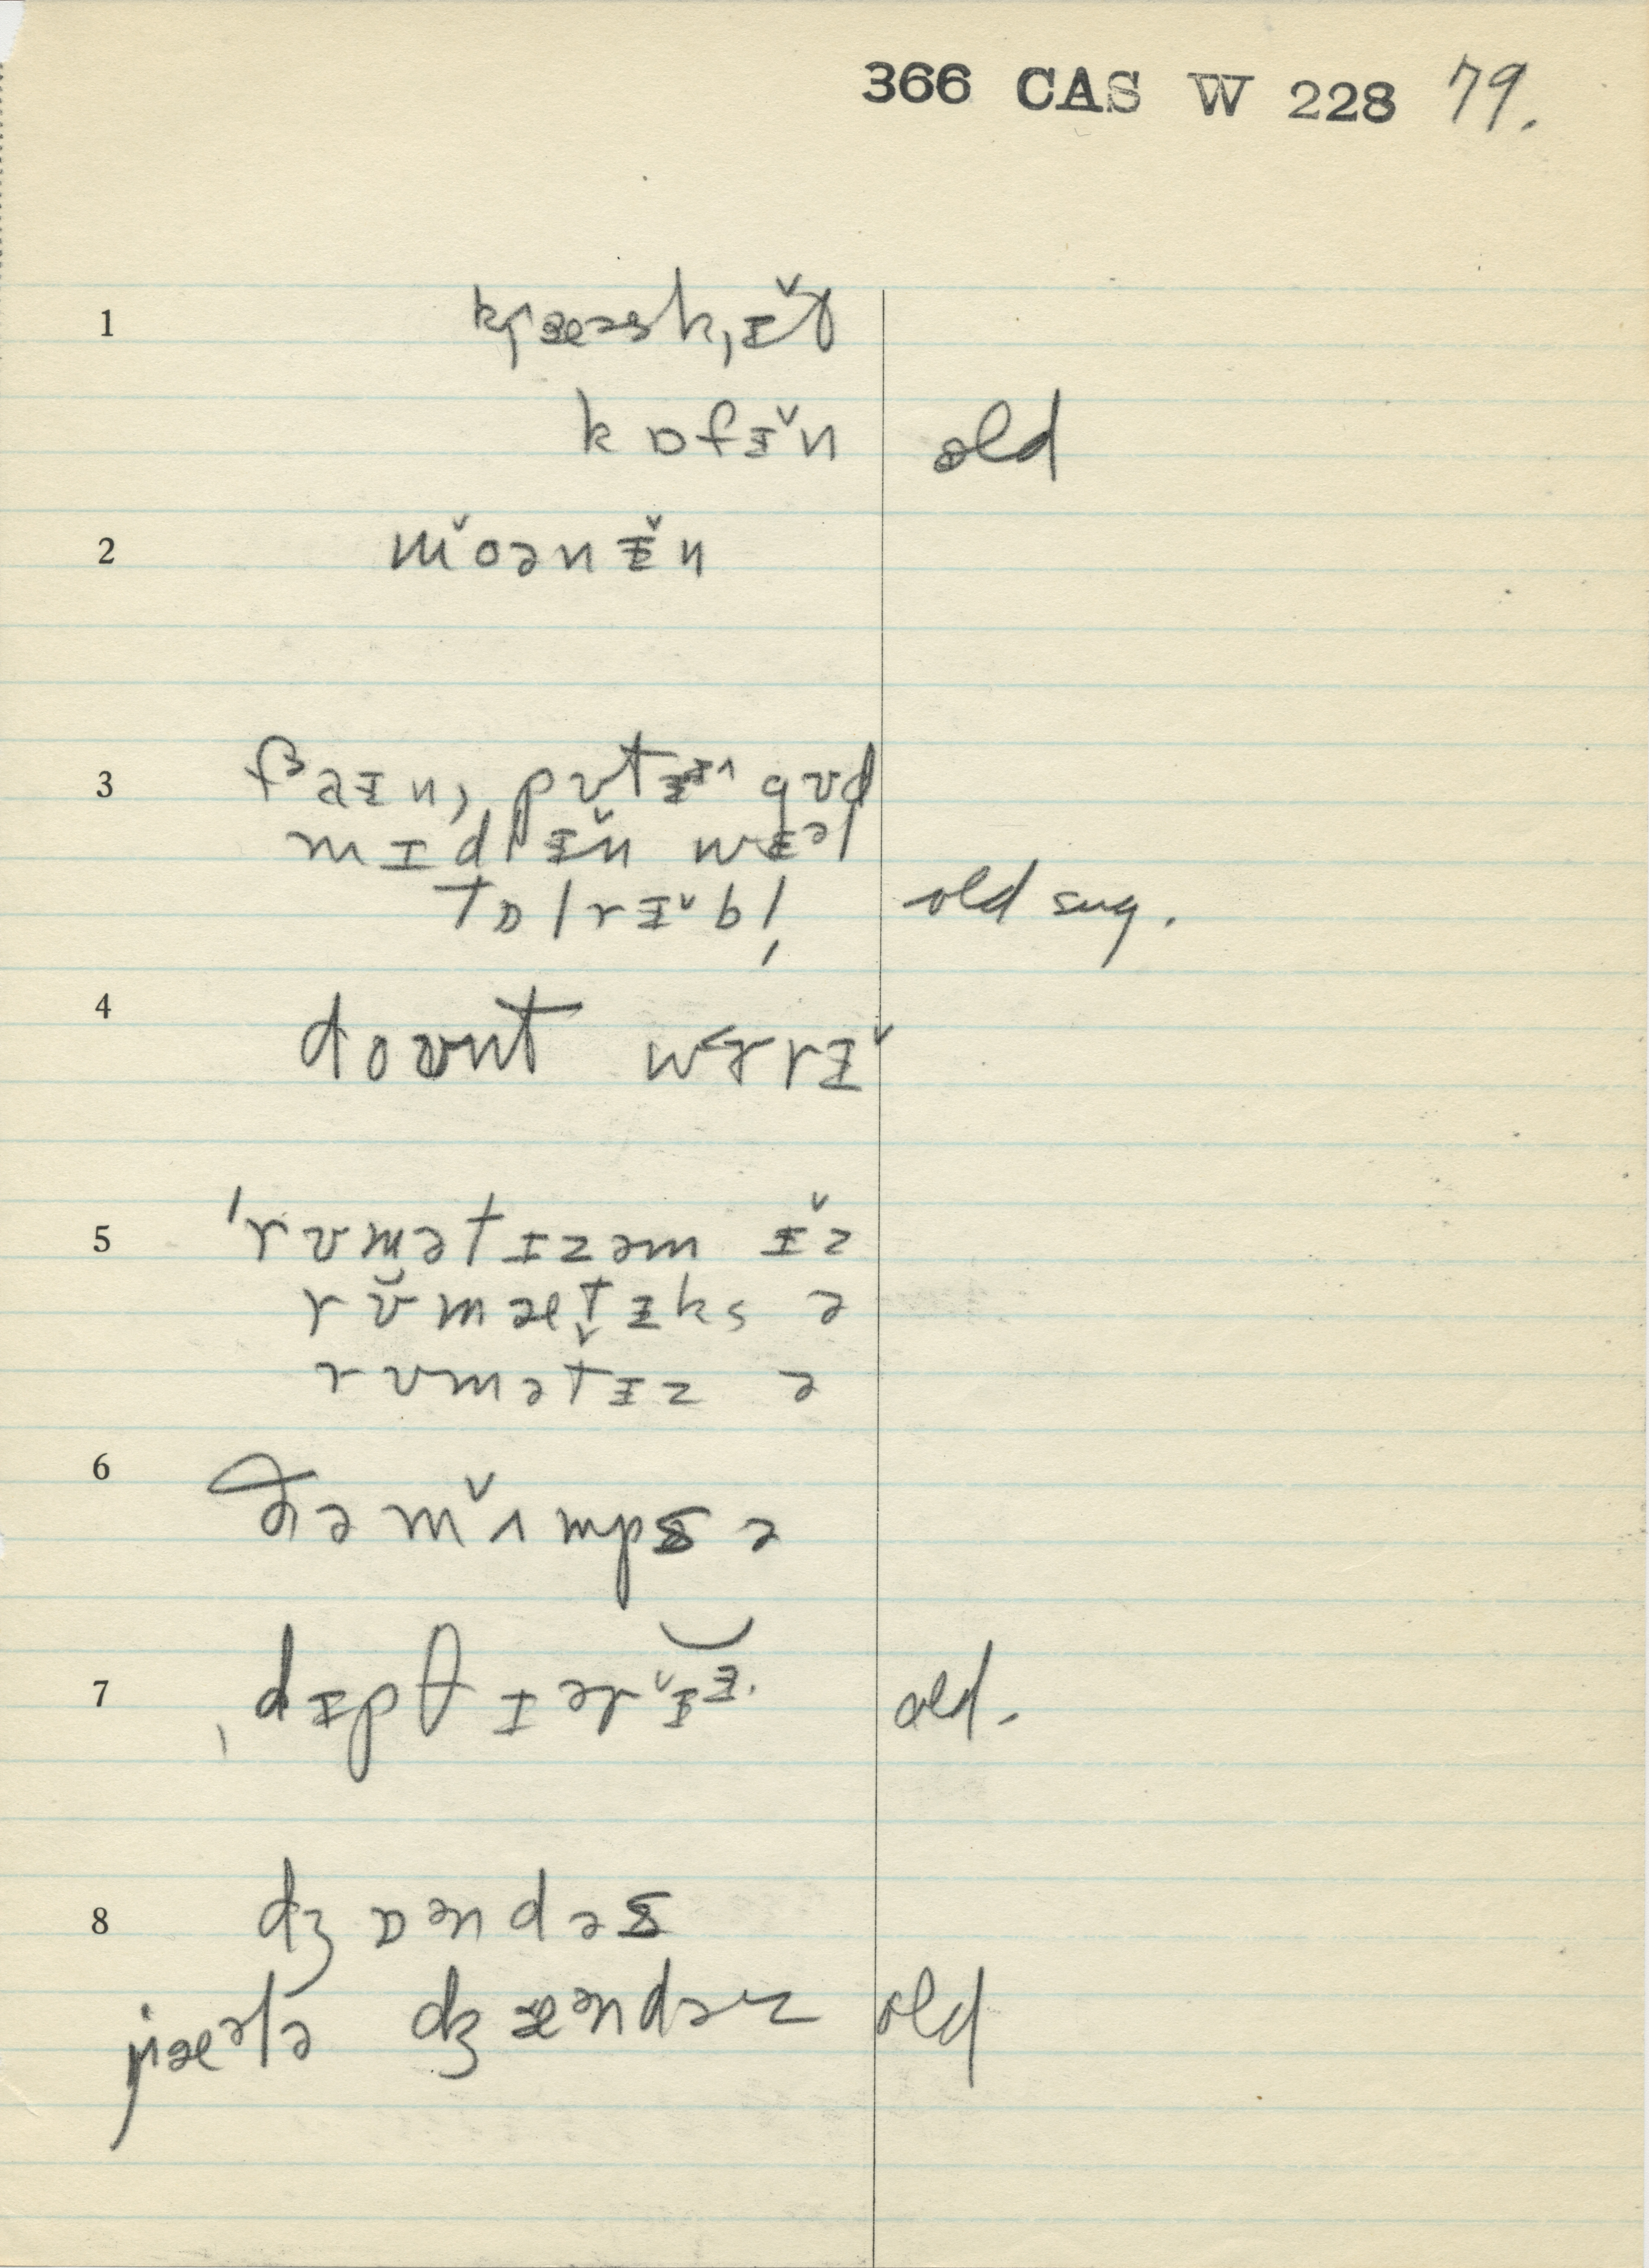 366 CAS W 228 79.
1 kʲæəsk,ɪ̵̌ɣ
kɒfɪ̵̌n old
2 m̌oənɪ̵̌n
3 fɜaɪ̵n, pʊtɪ̵ɪ̵^ gʊd
mɪdlɪ̵̌n wɛəl
tɒlrɪ̵ˇbl̩ old sug.
4 doʊnt wɝrɪ̵ˇ
5 'rʊmətɪzəm ɪ̵̌z
rʊ̆mætɪ̵ks ə
rʊmət̬ɪ̵z ə
6 ðə m̌ʌmps ə
7 ˌdɪ̵pθɪərˇɪ̵ɪ̵. old.
8 dʒɒəndəs
jæələ dʒæəndəz old